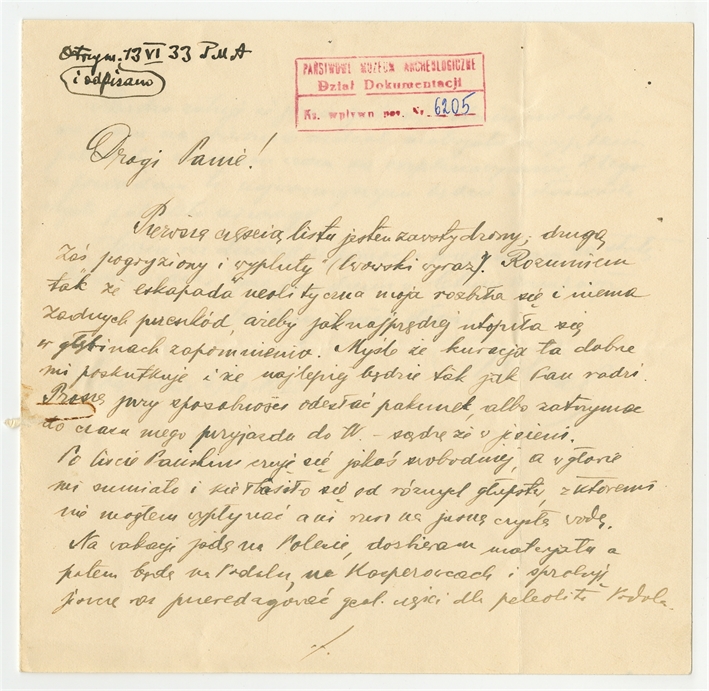 Otrzym. 13 VI 33 P.M.A
i odpisano
PAŃSTWOWE MUZEUM ARCHEOLOGICZNE
Dział Dokumentacji
Ks. wpływu poz. Nr. 6205
Drogi Panie!
Pierwszą częścią listu jestem zawstydzony, drugą
zaś pogryziony i wypluty (lwowski wyraz). Rozumiem
tak że eskapada neolityczna moja rozbiła się i niema
żadnych przeszkód, ażeby jaknajprędzej utopiła się
w głębinach zapomnienia. Myślę że kuracja ta dobrze
mi poskutkuje i że najlepiej będzie tak jak Pan radzi.
Proszę przy sposobności odesłać pakunek albo zatrzymać
do czasu mego przyjazdu do W. – sądzę że w jesieni.
Po liście Pańskim czuję się jakoś swobodniej, a w głowie
mi szumiało i się od różnych głupstw, z któremi
nie mogłem wypłynąć ani rusz na jasną czystą wodę.
Na wakacje jadę na Polesie, dozbieram materjału a
potem będę na Podolu, na Kasperowcach i spróbuję
jeszcze raz przeredagować geol. części dla paleolitu Podola.
./.